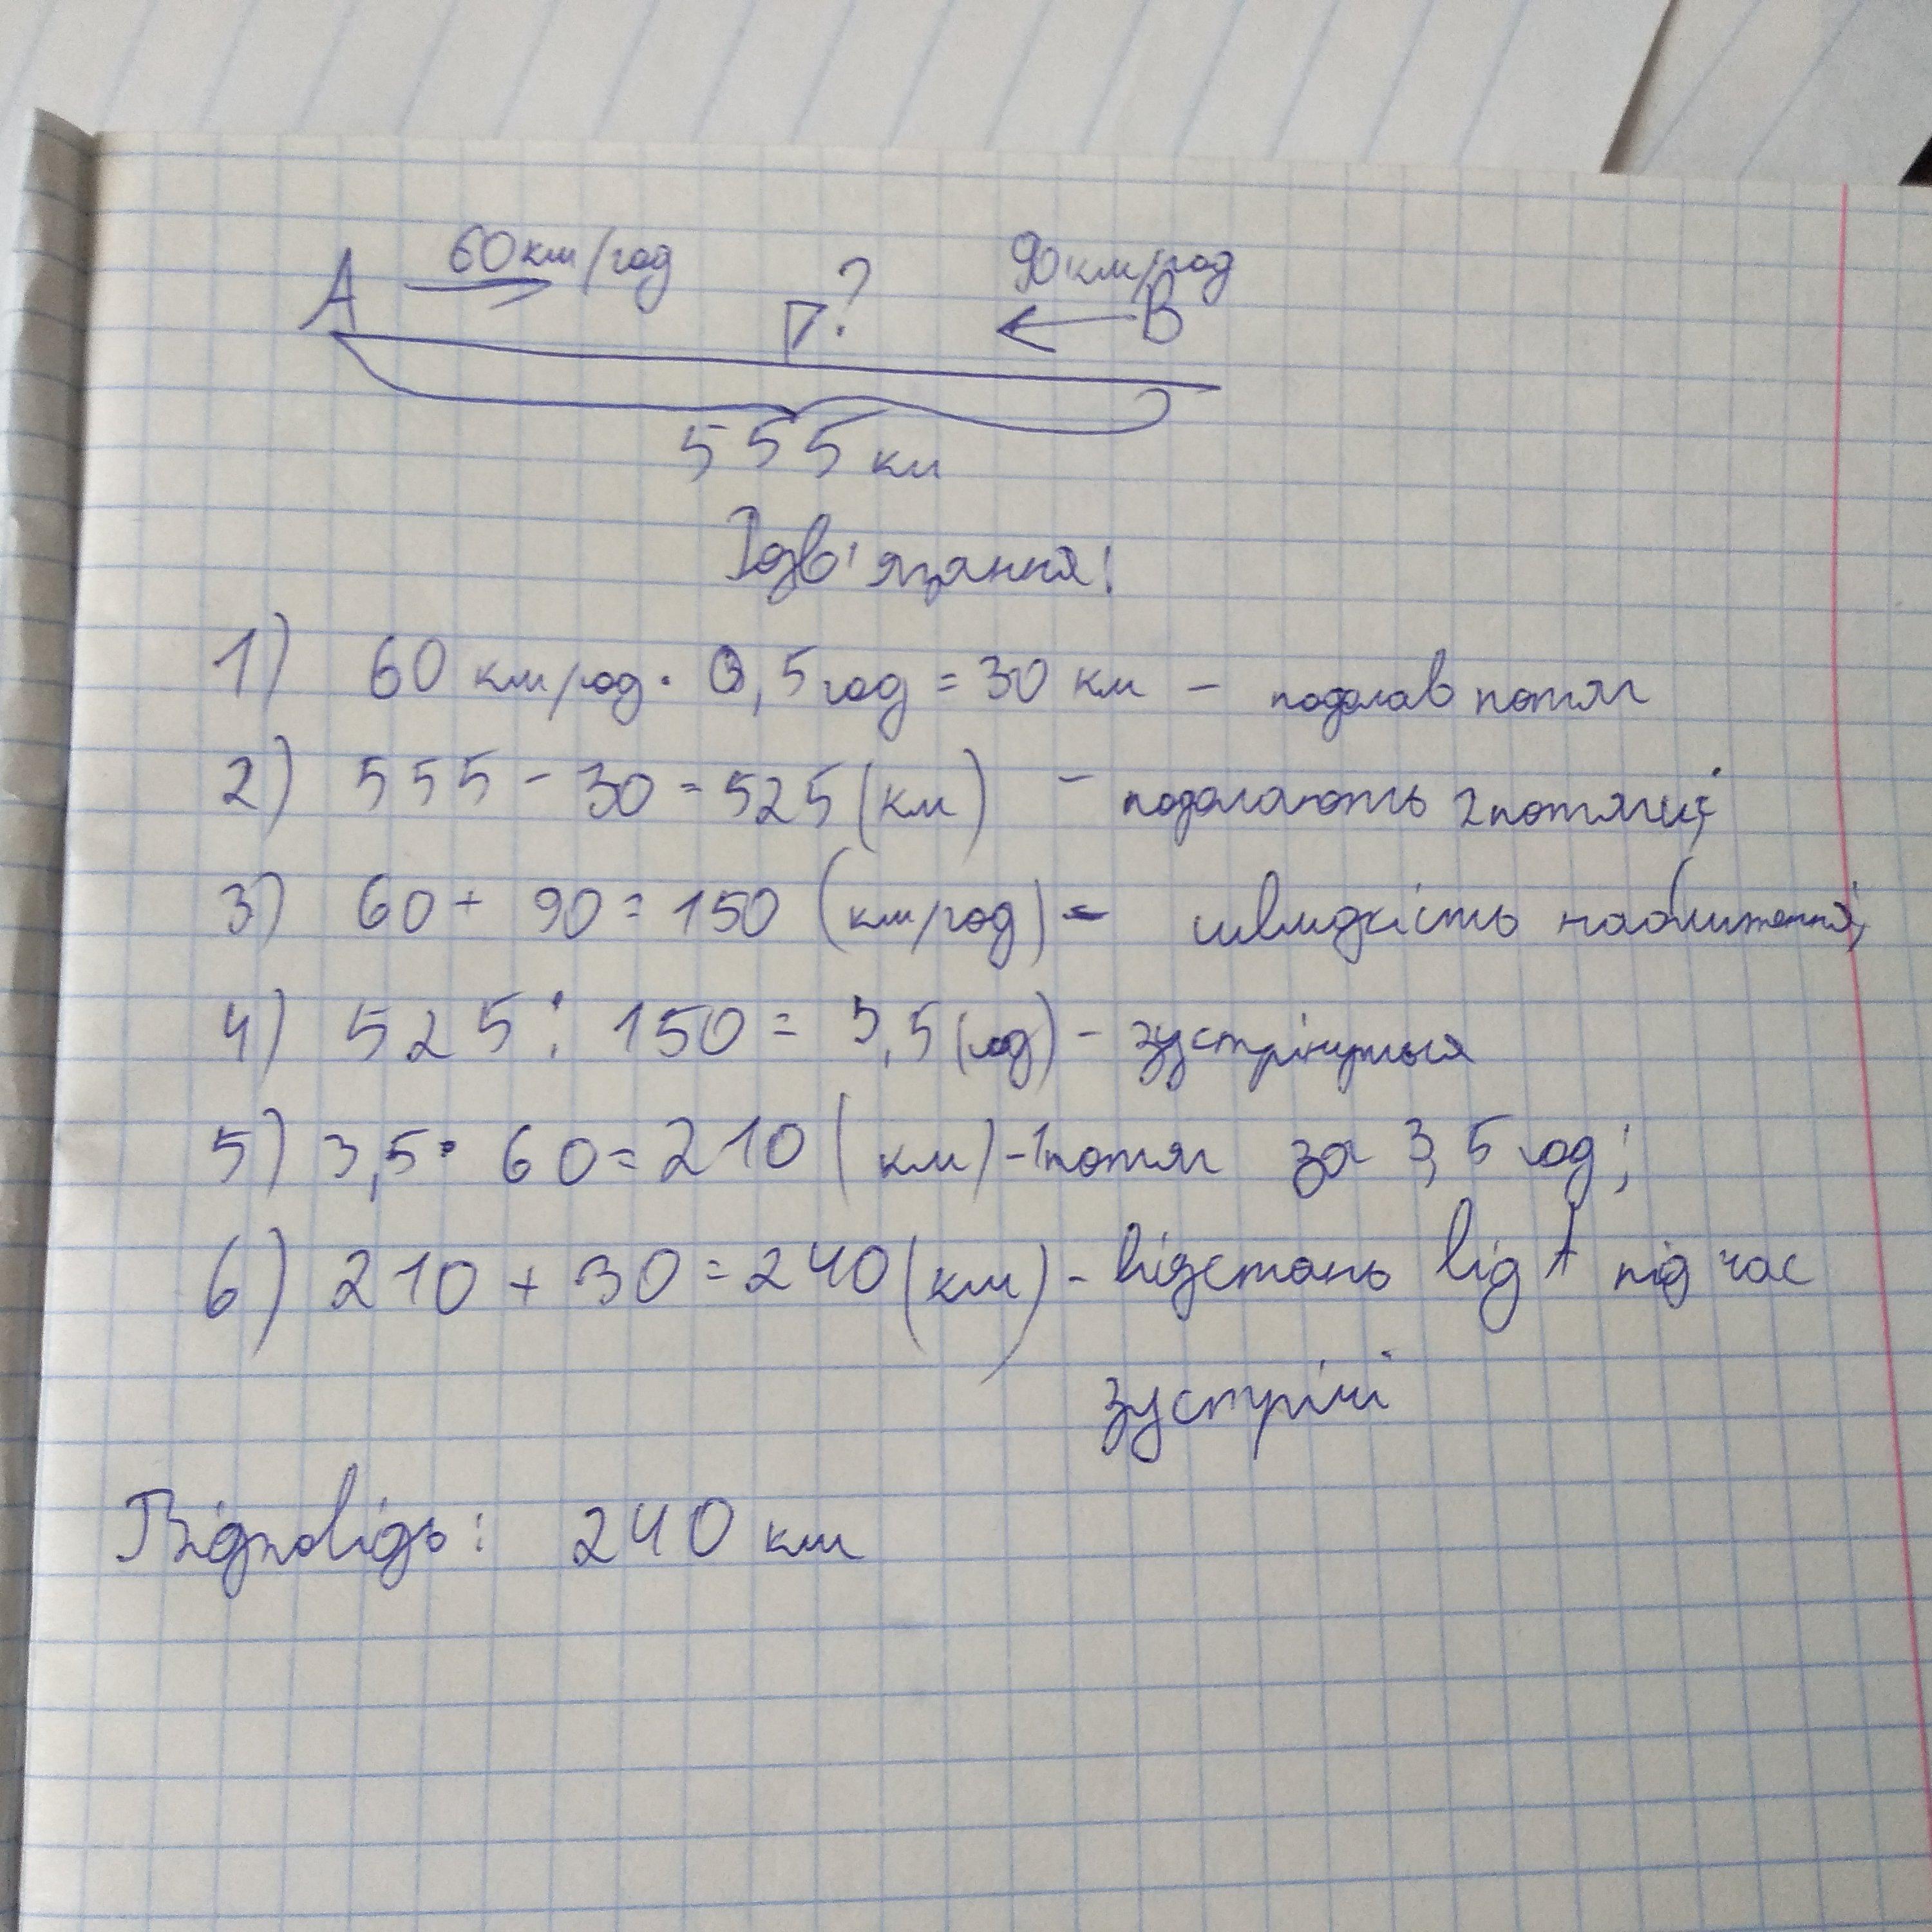 60км/год ? 90км/год
A B
555 км
Розв'язання:
1) 60 км/год · 0,5 год = 30 км – подолав потяг
2) 555 - 30 = 525 (км) – подолають 2 потяги;
3) 60 + 90 = 150 (км/год) – швидкість наближення;
4) 525 : 150 = 3,5 (год) – зустрінуться
5) 3,5 · 60 = 210 (км) – 1 потяг за 3,5 год;
6) 210 + 30 = 240 (км) – відстань від A під час
зустрічі
Відповідь: 240 км